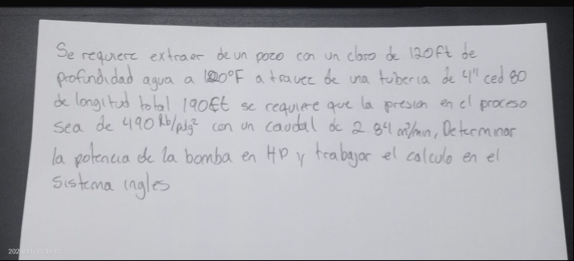 Se requiere extraer de un pozo con un claro de 120ft de
profindidad agua a 120°F a travez de una tuberia de 4" ced 80
de longitud total 190ft se requiere que la presion en el proceso
sea de 490 lb/pulg² con un caudal de 2.84 m³/min, Determinar
la potencia de la bomba en HP y trabajar el calculo en el
sistema ingles